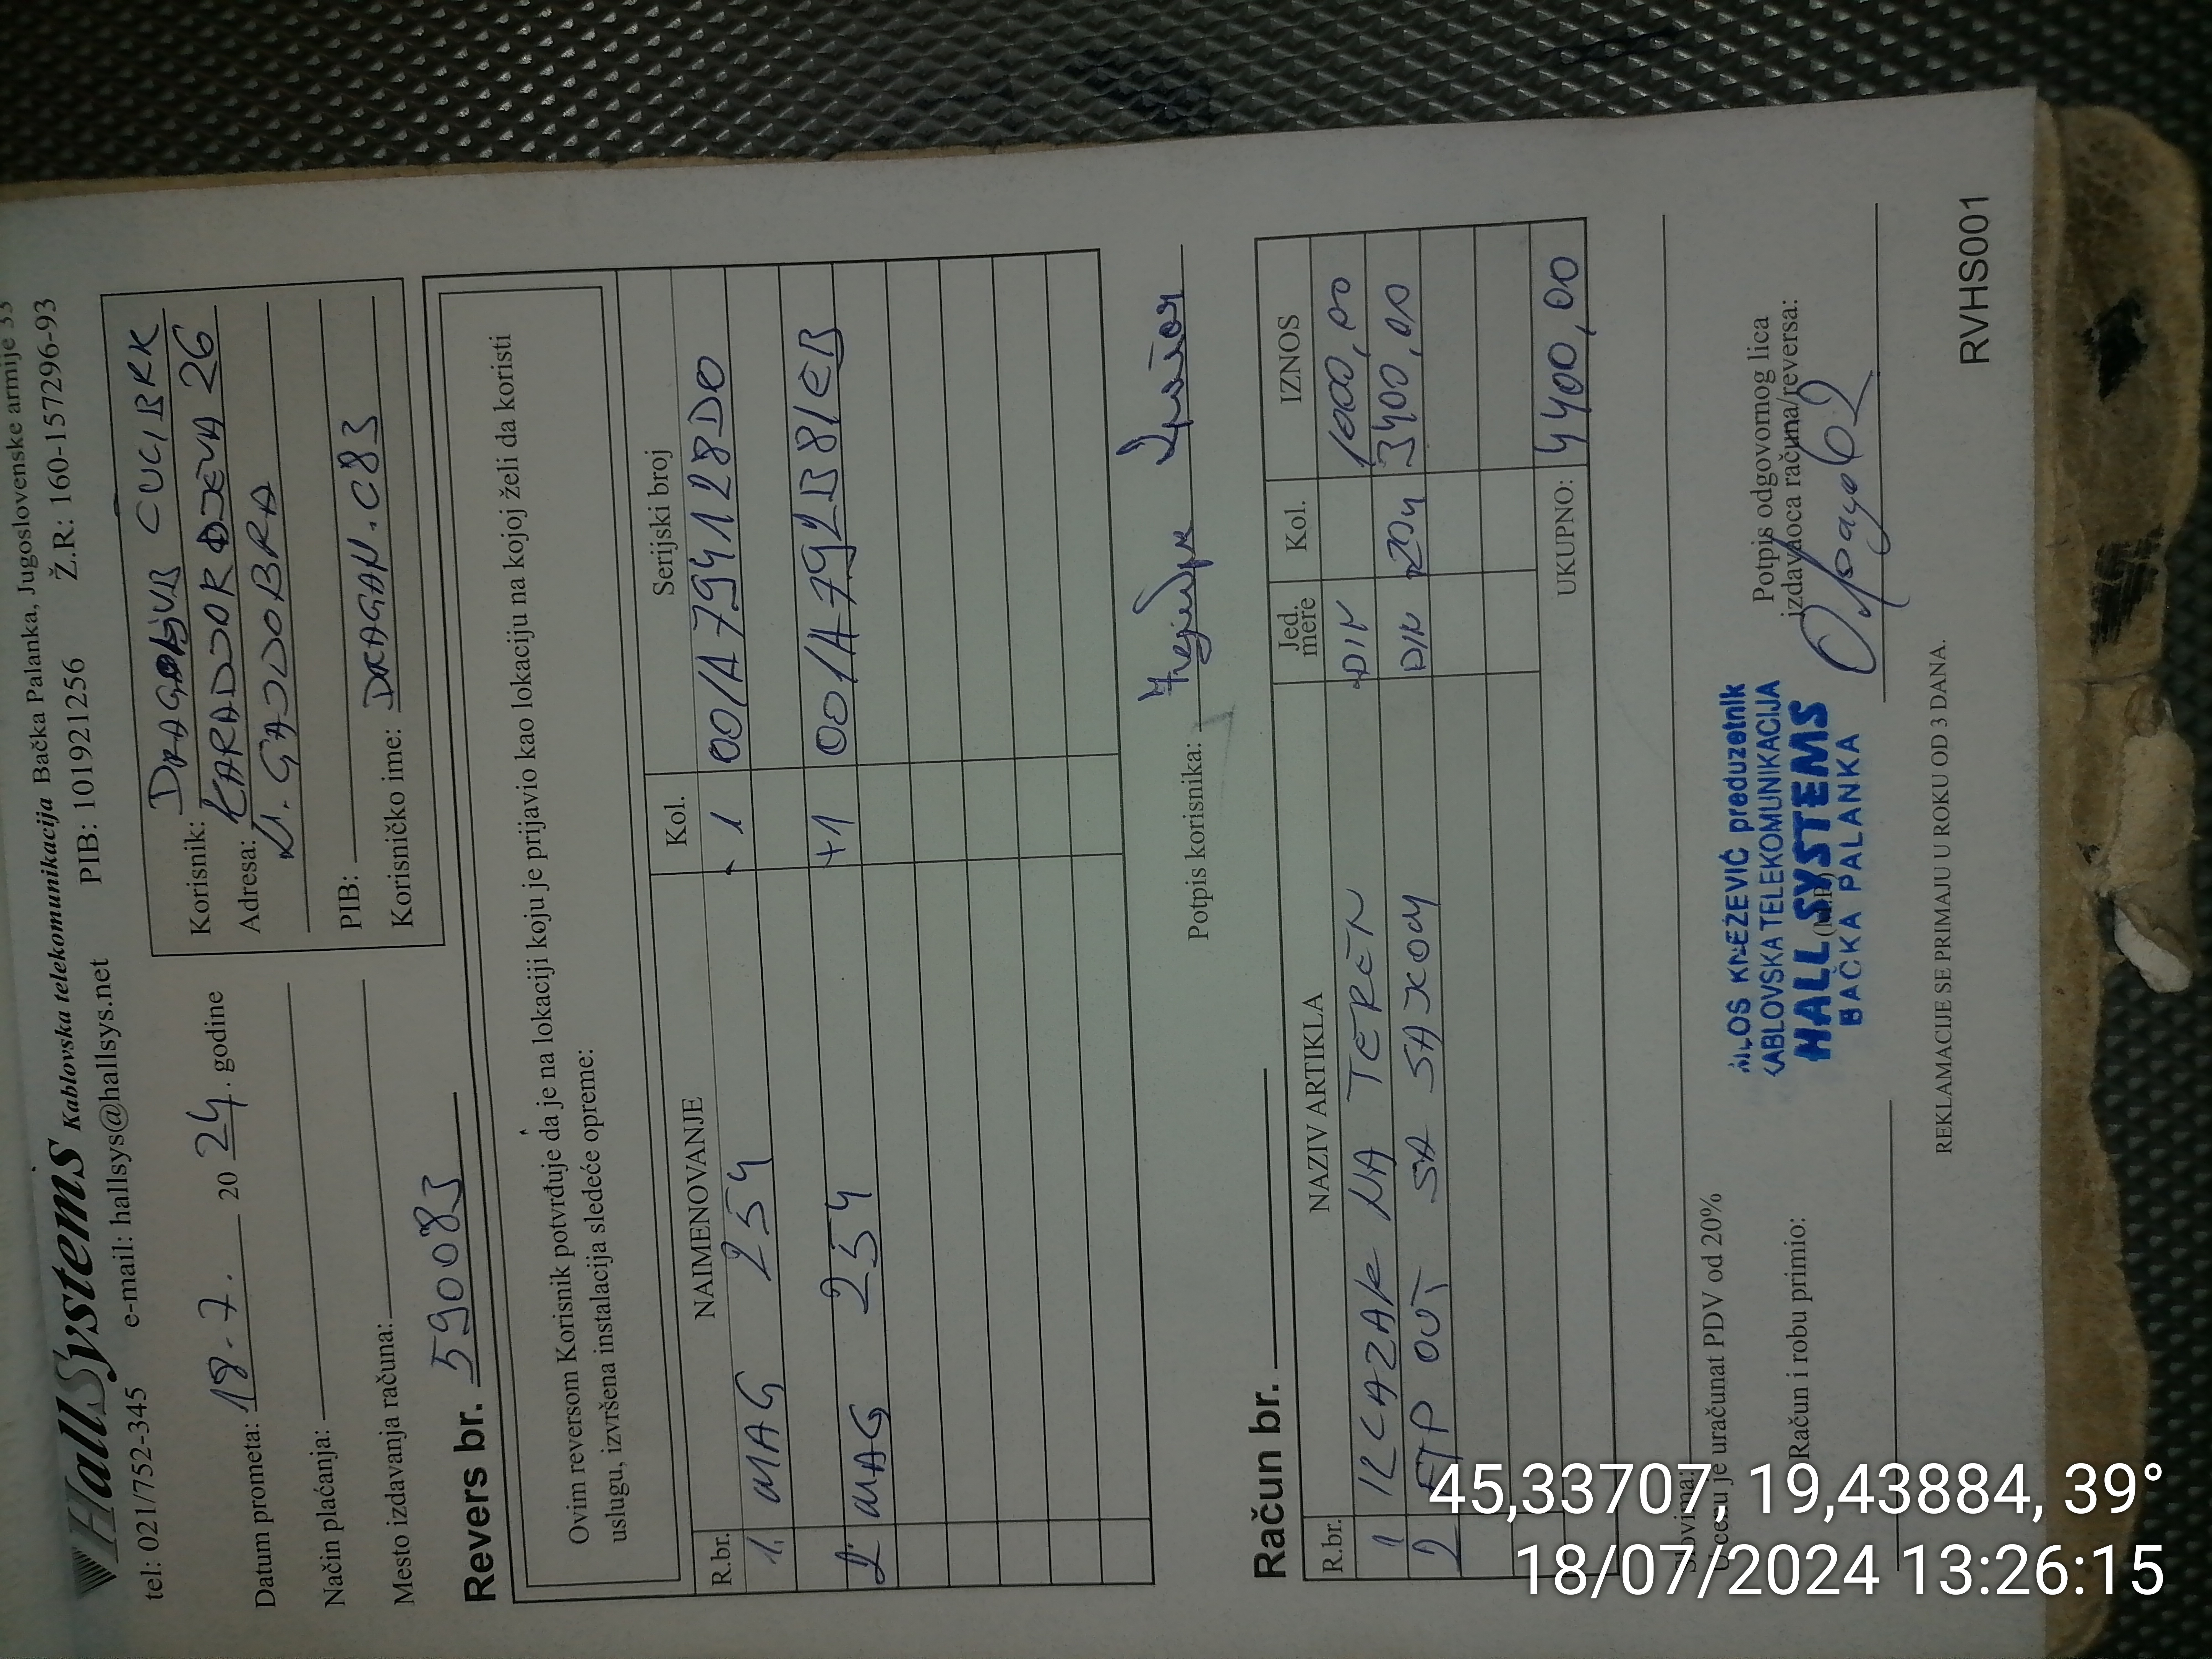 HallSystems Kablovska telekomunikacija Bačka Palanka, Jugoslovenske armije 33
tel: 021/752-345 e-mail: hallsys@hallsys.net PIB: 101921256 Ž.R: 160-157296-93
Datum prometa: 18.7. 2024. godine
Način plaćanja:
Mesto izdavanja računa:
Korisnik: CUCIBRK
Adresa: KARADJORDJEVA 26
N. GAJDOBRA
PIB:
Korisničko ime: DRAGAN.C83
Revers br. 590083
Ovim reversom Korisnik potvrđuje da je na lokaciji koju je prijavio kao lokaciju na kojoj želi da koristi
uslugu, izvršena instalacija sledeće opreme:
R.br. NAIMENOVANJE Kol. Serijski broj
1. MAG 254 - 1 001A794128D0
2. MAG 254 +1 001A792B81EB
Potpis korisnika:
Račun br.
R.br. NAZIV ARTIKLA Jed. mere Kol. IZNOS
1 IZLAZAK NA TEREN DIN 1000,00
2 FTP OUT SA SAJLOM DIN 20m 3400,00
UKUPNO: 4400,00
Slovima:
U cenu je uračunat PDV od 20%
Račun i robu primio:
MILOŠ KNEŽEVIĆ preduzetnik
KABLOVSKA TELEKOMUNIKACIJA
HALL SYSTEMS
BAČKA PALANKA
Potpis odgovornog lica
izdavaoca računa/reversa:
REKLAMACIJE SE PRIMAJU U ROKU OD 3 DANA.
RVHS001
45,33707, 19,43884, 39°
18/07/2024 13:26:15